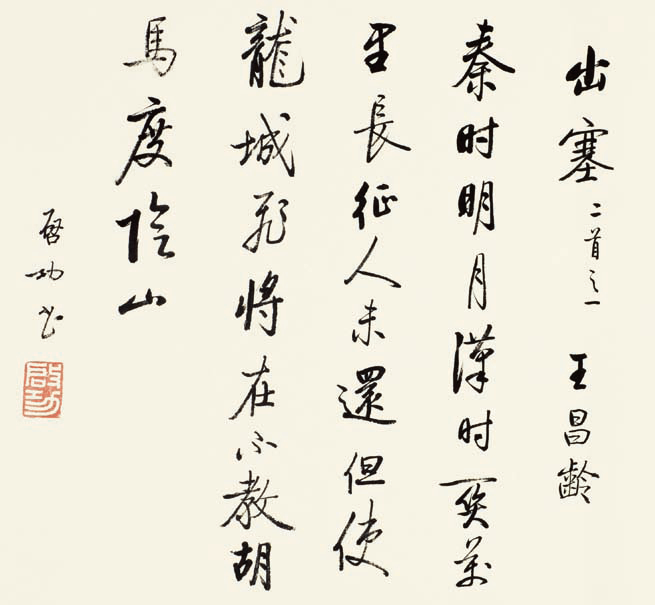 出塞二首之一 王昌齡
秦时明月漢时関萬
里長征人未還但使
龍城飛將在不教胡
馬度陰山
啓功书
啟功